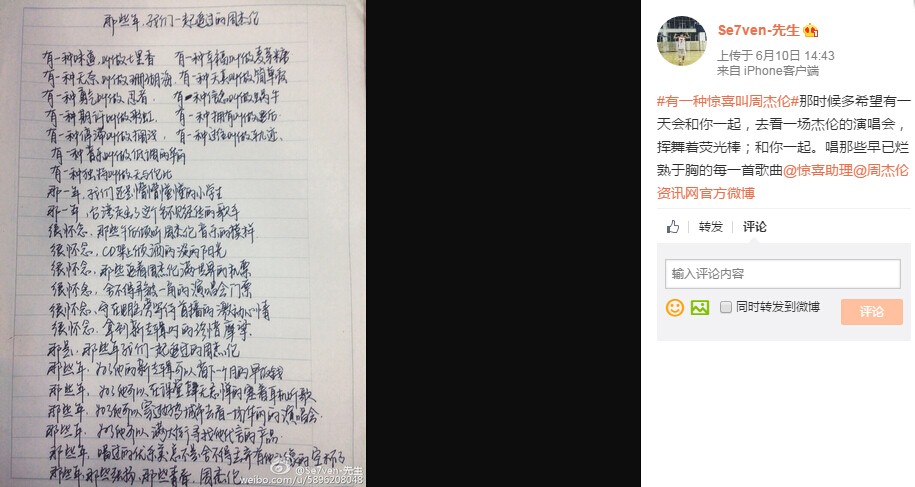 那些年,我们一起追过的周杰伦
有一种味道叫做七里香 有一种幸福叫做麦芽糖
有一种无奈叫做珊瑚海 有一种天真叫做简单爱
有一种勇气叫做忍者, 有一种信念叫做蜗牛
有一种期许叫做彩虹, 有一种拥有叫做最后
有一种停滞叫做搁浅, 有一种过往叫做轨迹、
有一种音乐叫做低调的华丽
有一种独特叫做无与伦比
那一年,我们还是懵懵懂懂的小学生
那一年,台湾走出了这个名不见经传的歌手
很怀念,那些午后倾听周杰伦音乐的模样
很怀念,CD架上倾洒的淡淡阳光
很怀念,那些追着周杰伦满世界的机票
很怀念,舍不得弄皱一角的演唱会门票
很怀念,守在明忠旁等待首播的激动心情
很怀念,拿到新专辑内的珍惜摩挲
那是,那些年我们一起追过的周杰伦
那些年,为了他的新专辑可以省下一个月的早饭钱
那些年,为了他可以在课堂肆无忌惮的塞着耳机听歌
那些年,为了他可以家边跨城市去看一场华丽的演唱会
那些年,为了他可以满大街寻找他代言的产品
那些年,喝过的优乐美总不是舍不得丢弃有他头像的空杯
那些年,那些张扬,那些青春,周杰伦
@Se7ven-先生
weibo.com/u/5896208048
Se7ven-先生
上传于 6月10日 14:43
来自 iPhone客户端
#有一种惊喜叫周杰伦#那时候多希望有一
天会和你一起,去看一场杰伦的演唱会,
挥舞着荧光棒;和你一起。唱那些早已烂
熟于胸的每一首歌曲@惊喜助理@周杰伦
资讯网官方微博
转发 评论
输入评论内容
同时转发到微博 评论